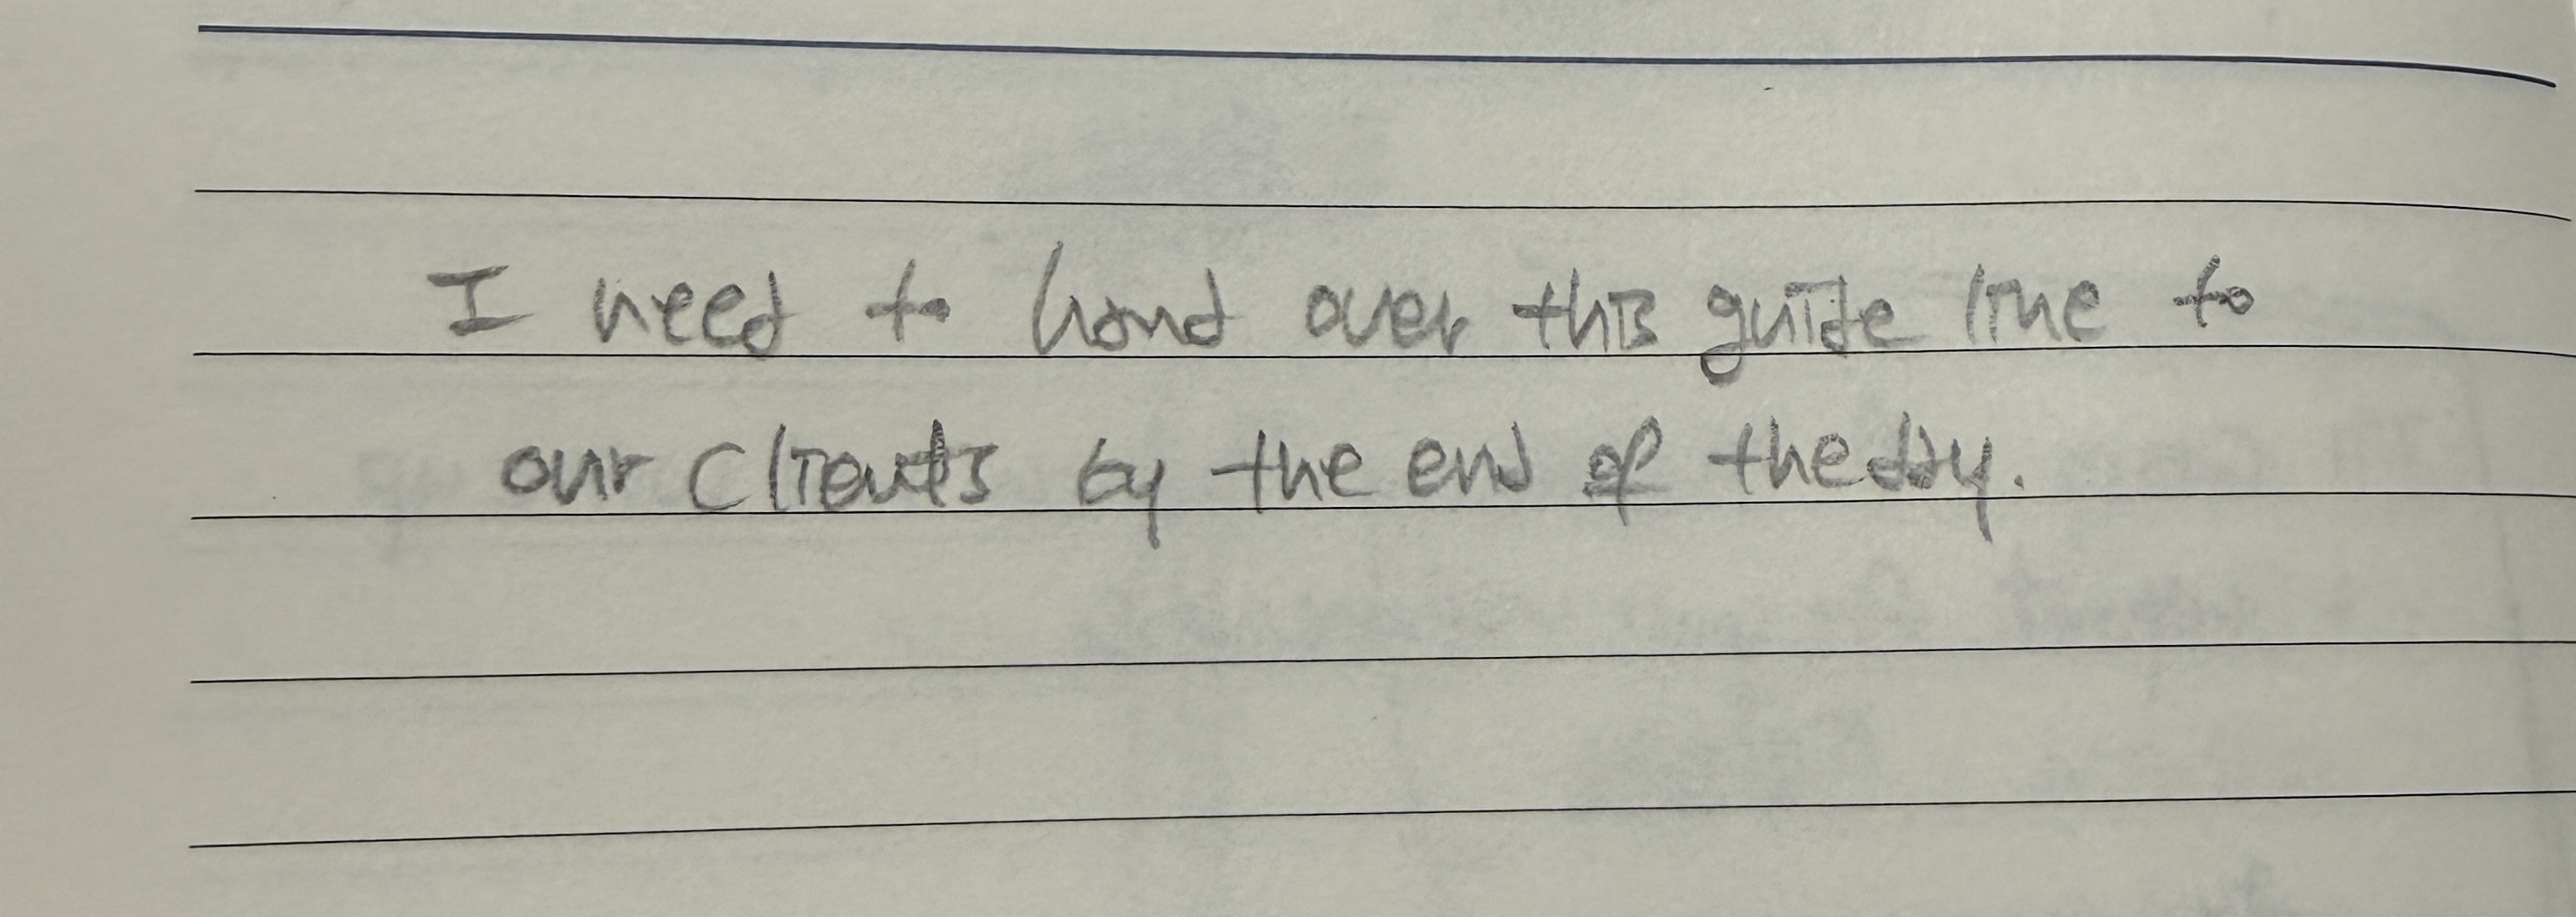 I need to hand over this guide line to
our clients by the end of the day.